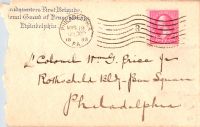 Headquarters First Brigade,
National Guard of Pennsylvania,
Philadelphia
PA.
Lt Colonel Wm G. Price Jr.
Rothschild Bldg Penn Square
Philadelphia